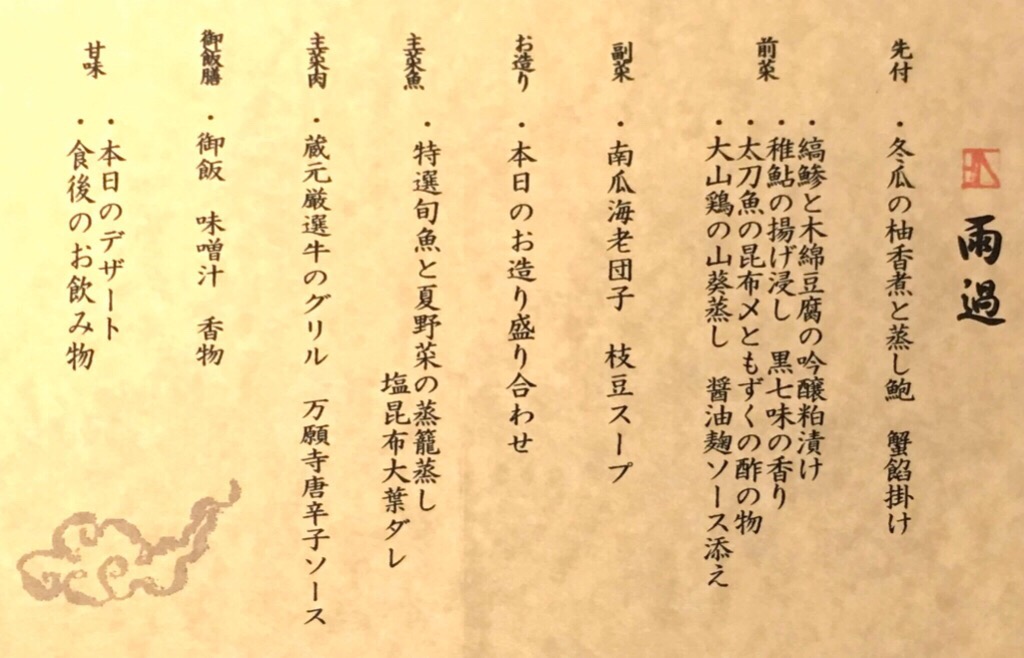 雨過
先付
・冬瓜の柚香煮と蒸し鮑　蟹餡掛け
前菜
・縞鯵と木綿豆腐の吟醸粕漬け
・稚鮎の揚げ浸し　黒七味の香り
・太刀魚の昆布〆ともずくの酢の物
・大山鶏の山葵蒸し　醤油麹ソース添え
副菜
・南瓜海老団子　枝豆スープ
お造り
・本日のお造り盛り合わせ
主菜魚
・特選旬魚と夏野菜の蒸籠蒸し
塩昆布大葉ダレ
主菜肉
・蔵元厳選牛のグリル　万願寺唐辛子ソース
御飯膳
・御飯　味噌汁　香物
甘味
・本日のデザート
・食後のお飲み物